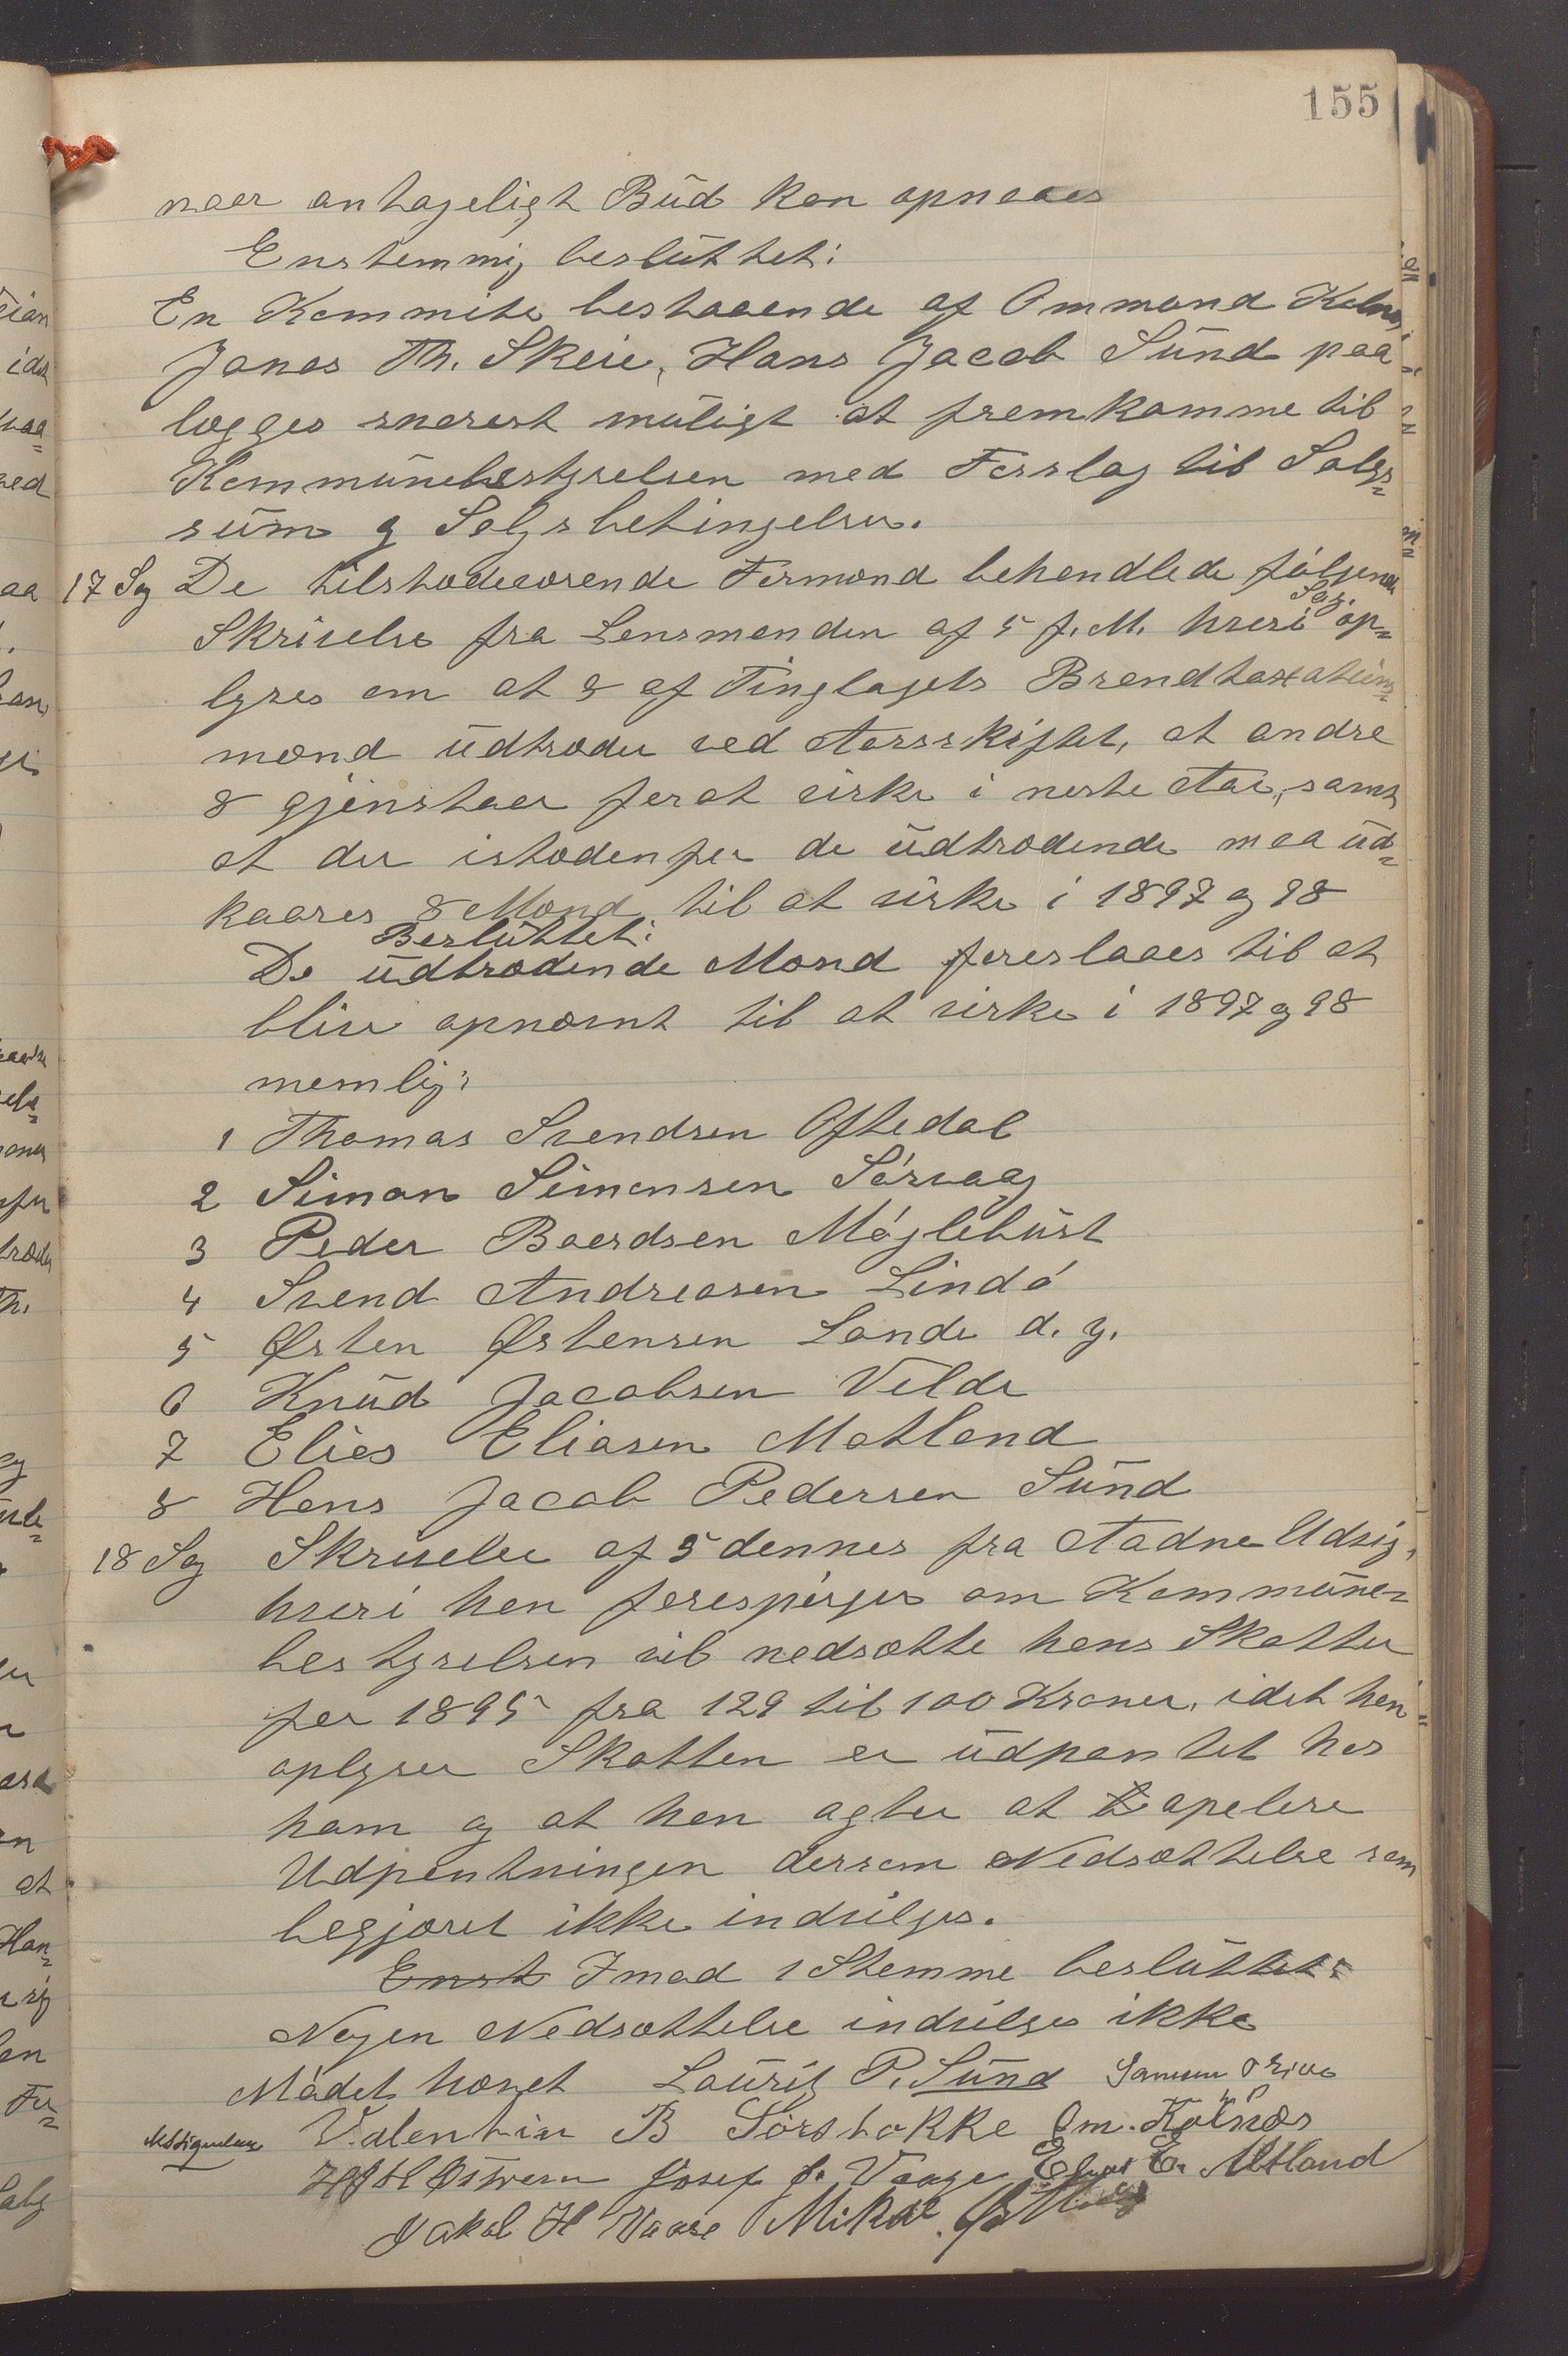 155
naar antageligt Bud kan opnaaes
Enstemmig besluttet:
En Kommite bestaaende af Ommund Kolnes,
Jonas Th. Skeie, Hans Jacob Sund paa
lægges snarest muligt at fremkomme til
Kommunebestyrelsen med Forslag til Salgs=
sum og Salgsbetingelser.
17 Sag De tilstedeværende Formænd behandlede følgende
Sag.
Skrivelse fra Lensmanden af 5 f. M. hvori op=
lyses om at 8 af Tinglagets Brandtaxations=
mænd udtræder ved Aarsskiftet, at andre
8 gjenstaar for at virke i neste Aar, samt
at der istædenfor de udtrædende maa ud=
kaares 8 Mænd til at virke i 1897 og 98
Besluttet:
De udtrædende Mænd foreslaaes til at
blive opnævnt til at virke i 1897 og 98
nemlig:
1 Thomas Svendsen Oftedal
2 Simon Simonsen Sørvaag
3 Peder Baardsen Møglebust
4 Svend Andreasen Lindø
5 Østen Østensen Lande d. y.
6 Knud Jacobsen Velde
7 Elias Eliasen Matland
8 Hans Jacob Pedersen Sund
18 Sag Skrivelse af 5 dennes fra Aadne Udvig,
hvori han forespørger om Kommune=
bestyrelsen vil nedsætte hans Skatter
for 1895 fra 129 til 100 Kroner, idet han
oplyser Skatten er udpantet hos
ham og at han agter at apelere
Udpantningen dersom Nedsættelse som
begjæret ikke indvilges.
Enst Imod 1 Stemme besluttet:
Nogen Nedsættelse indvilges ikke
Mødet hævet Lauritz P. Sund
Valentin B Sørstokke Om. Kolnæs
Josef J. Vaage Elias E. Matland
Jakob H Vaare Mikal